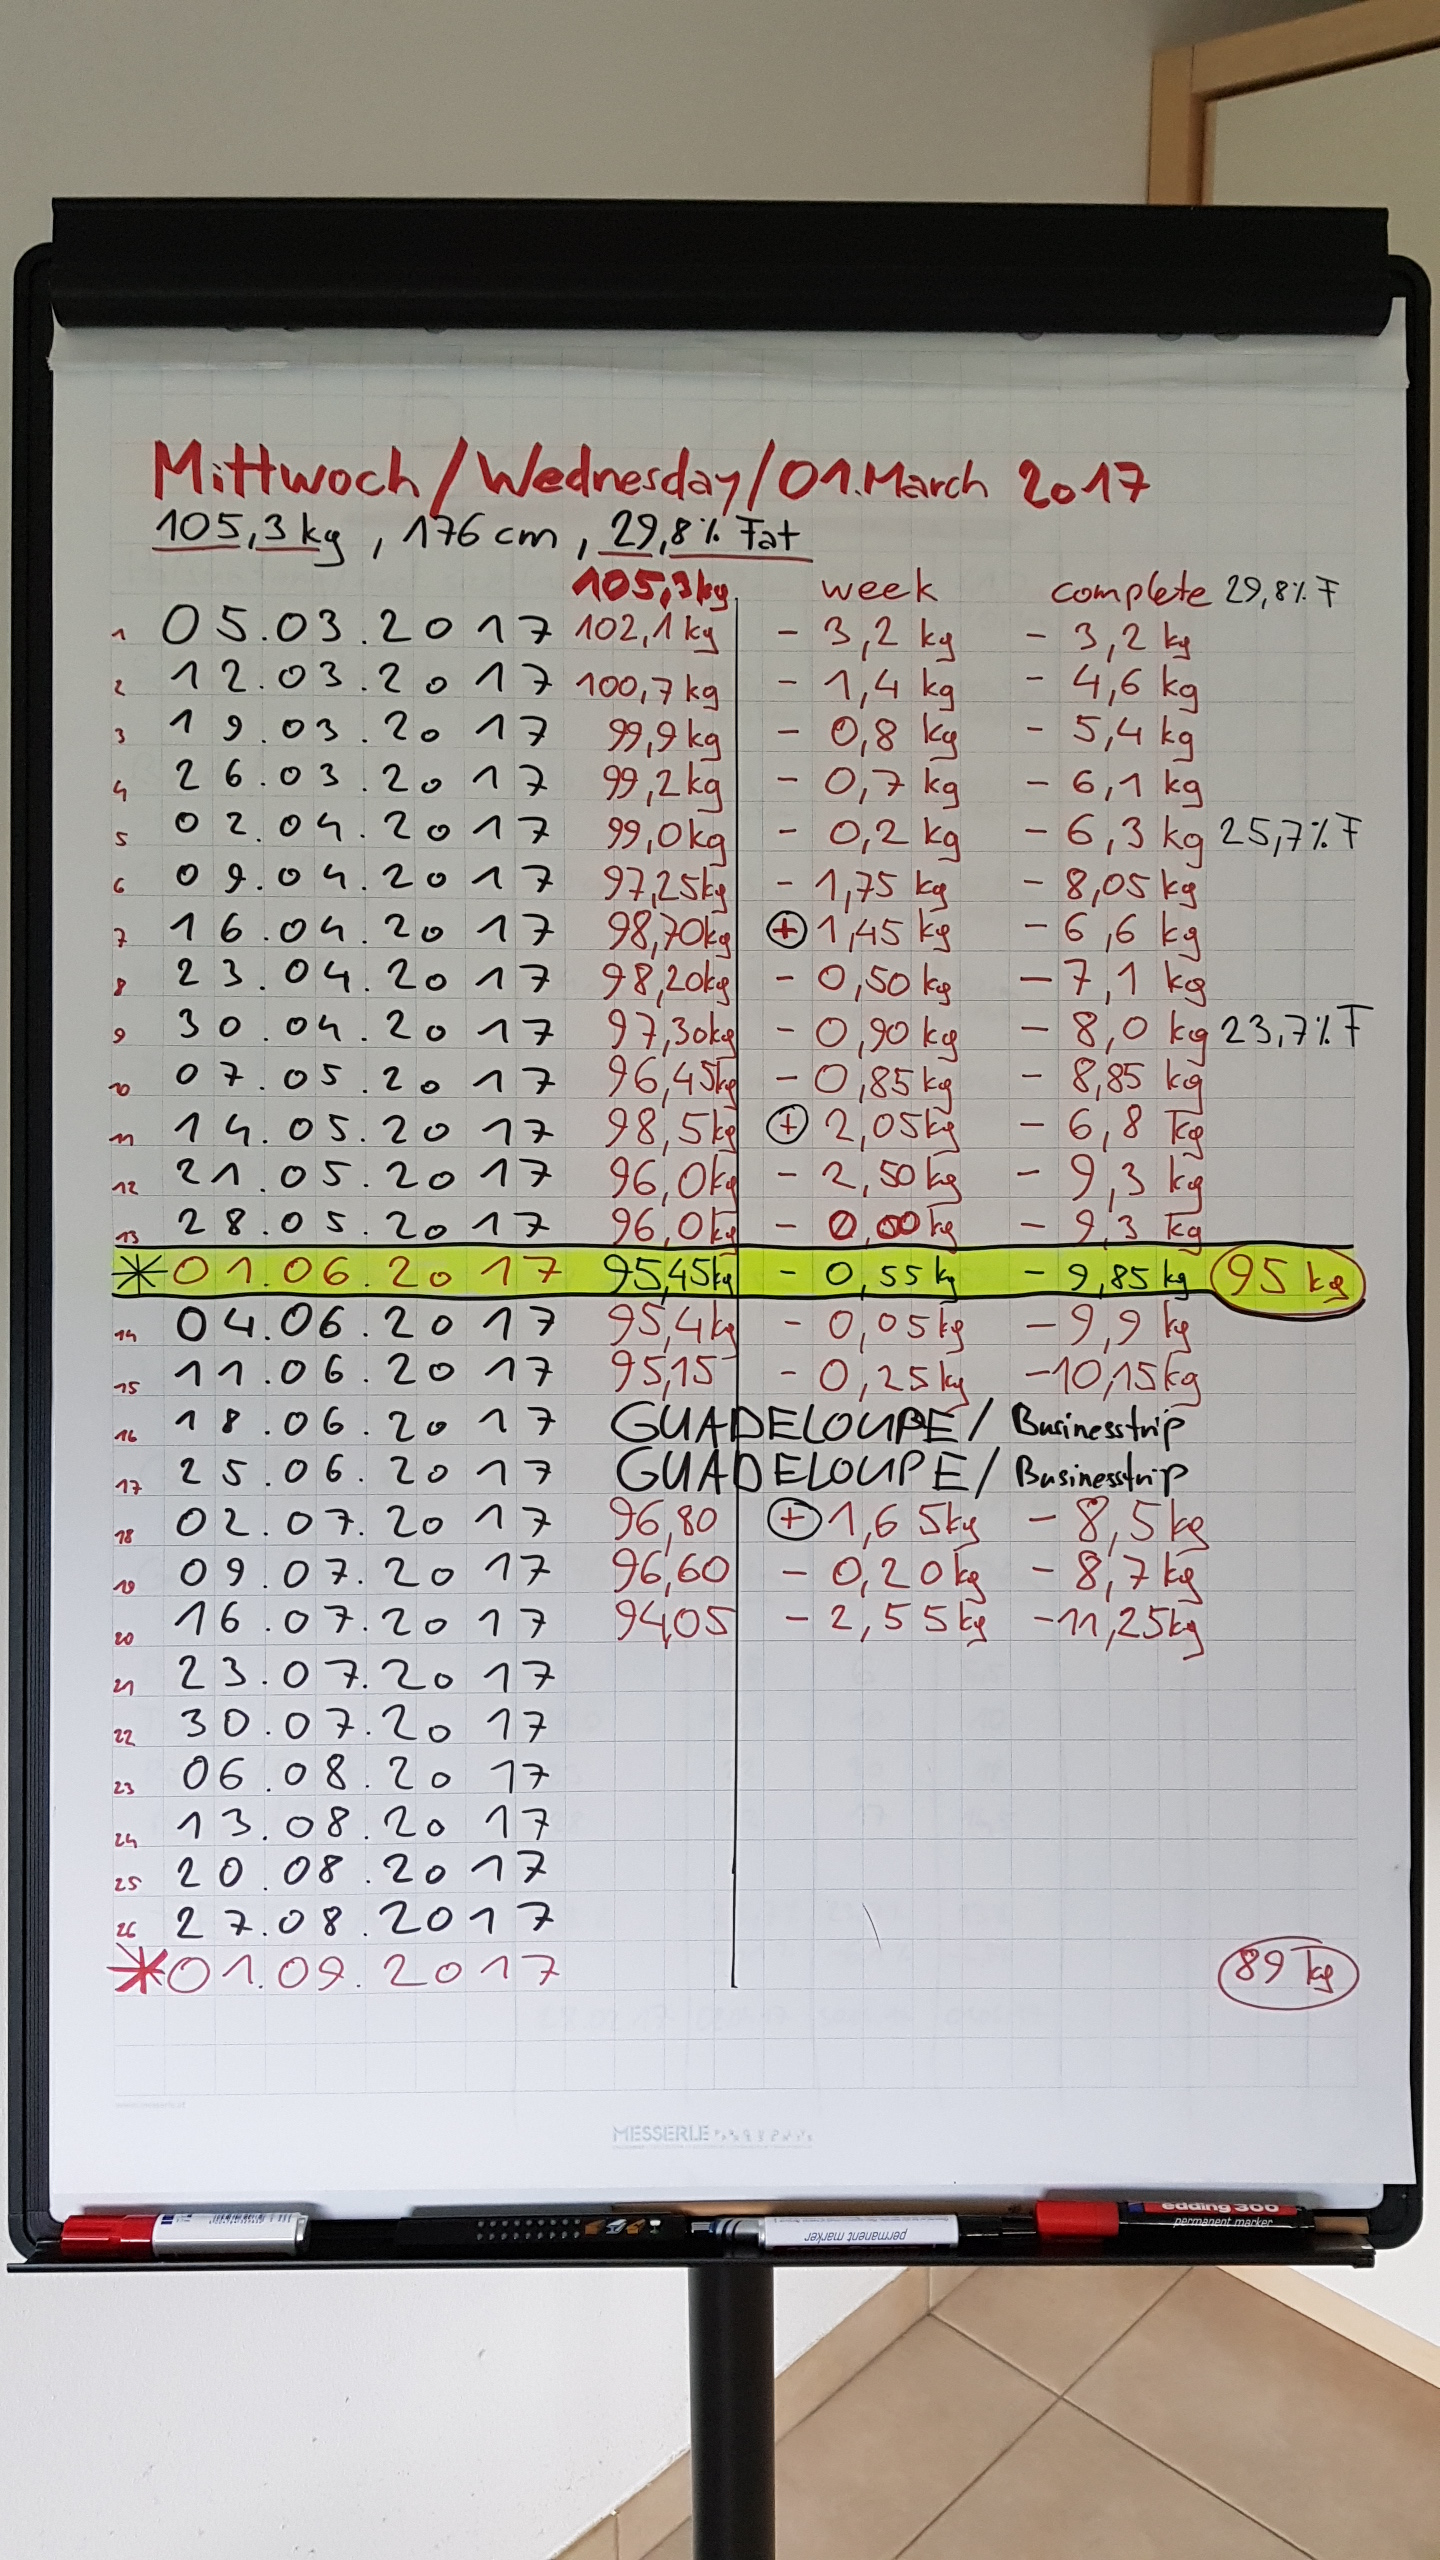 Mittwoch/Wednesday/01.March 2017
105,3 kg, 176 cm, 29,8% Fat
105,3kg week complete 29,8% F
1 05.03.2017 102,1 kg - 3,2 kg - 3,2 kg
2 12.03.2017 100,7 kg - 1,4 kg - 4,6 kg
3 19.03.2017 99,9 kg - 0,8 kg - 5,4 kg
4 26.03.2017 99,2 kg - 0,7 kg - 6,1 kg
5 02.04.2017 99,0 kg - 0,2 kg - 6,3 kg 25,7% F
6 09.04.2017 97,25kg - 1,75 kg - 8,05 kg
7 16.04.2017 98,70kg + 1,45 kg - 6,6 kg
8 23.04.2017 98,20kg - 0,50 kg - 7,1 kg
9 30.04.2017 97,30kg - 0,90 kg - 8,0 kg 23,7% F
10 07.05.2017 96,45kg - 0,85kg - 8,85 kg
11 14.05.2017 98,5kg + 2,05kg - 6,8 kg
12 21.05.2017 96,0kg - 2,50 kg - 9,3 kg
13 28.05.2017 96,0kg - 0,00kg - 9,3 kg
* 01.06.2017 95,45kg - 0,55 kg - 9,85 kg 95 kg
14 04.06.2017 95,4kg - 0,05 kg - 9,9 kg
15 11.06.2017 95,15 - 0,25 kg -10,15kg
16 18.06.2017 GUADELOUPE/ Businesstrip
17 25.06.2017 GUADELOUPE/ Businesstrip
18 02.07.2017 96,80 + 1,65kg - 8,5 kg
19 09.07.2017 96,60 - 0,20kg - 8,7 kg
20 16.07.2017 94,05 - 2,55kg -11,25kg
21 23.07.2017
22 30.07.2017
23 06.08.2017
24 13.08.2017
25 20.08.2017
26 27.08.2017
* 01.09.2017 89 kg
MESSERLE
permanent marker
edding 300
permanent marker